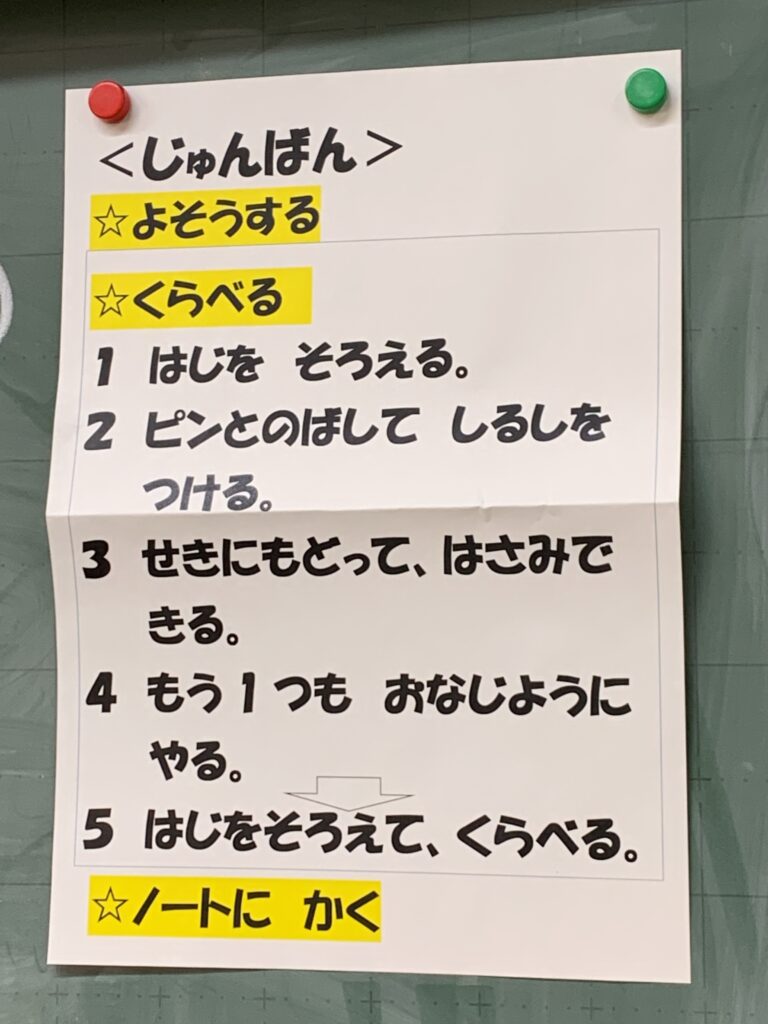 <じゅんばん>
☆よそうする
☆くらべる
1 はじを そろえる。
2 ピンとのばして しるしを
つける。
3 せきにもどって、はさみで
きる。
4 もう1つも おなじように
やる。
5 はじをそろえて、くらべる。
☆ノートに かく